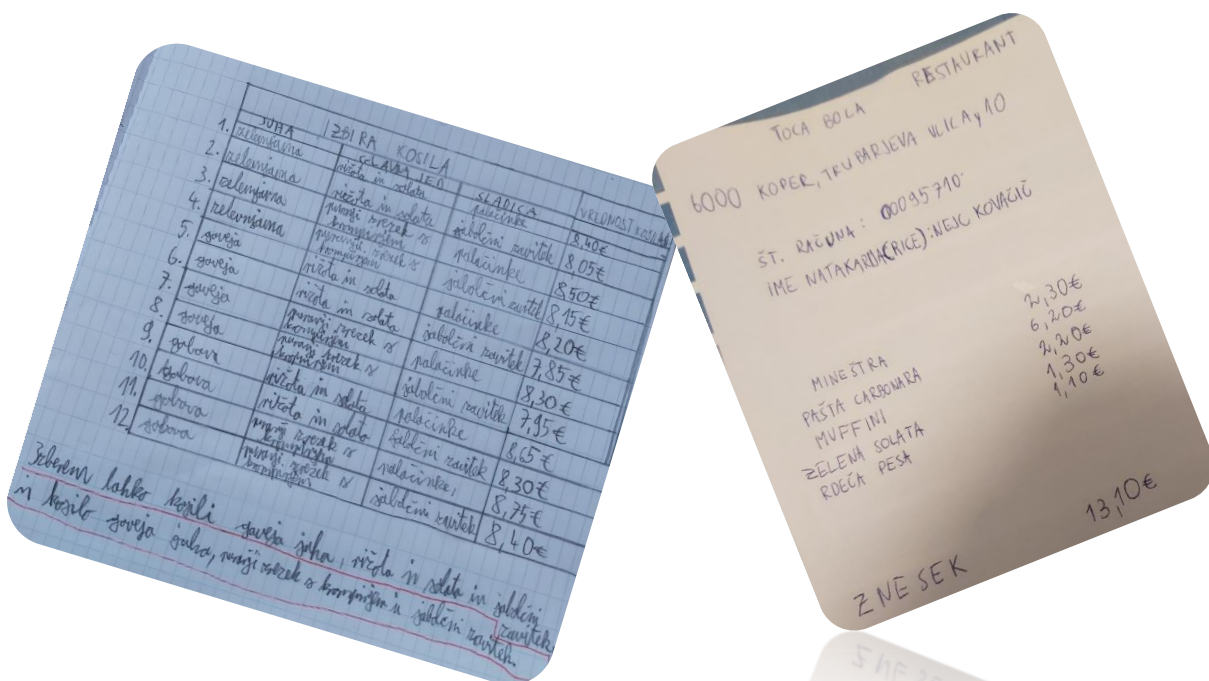 ZBIRA KOSILA
JUHA GLAVNA JED SLADICA VREDNOST KOSILA
1. zelenjavna rižota in solata palačinke 8,40€
2. zelenjavna rižota in solata jabolčni zavitek 8,05€
3. zelenjavna puranji zrezek s krompirjem palačinke 8,50€
4. zelenjavna puranji zrezek s krompirjem jabolčni zavitek 8,15€
5. goveja rižota in solata palačinke 8,20€
6. goveja rižota in solata jabolčni zavitek 7,85€
7. goveja puranji zrezek s krompirjem palačinke 8,30€
8. goveja puranji zrezek s krompirjem jabolčni zavitek 7,95€
9. gobova rižota in solata palačinke 8,65€
10. gobova rižota in solata jabolčni zavitek 8,30€
11. gobova puranji zrezek s krompirjem palačinke, 8,75€
12. gobova puranji zrezek s krompirjem jabolčni zavitek 8,40€
Izberem lahko kosili goveja juha, rižota in solata in jabolčni zavitek
in kosilo goveja juha, puranji zrezek s krompirjem in jabolčni zavitek.
TOCA BOCA RESTAURANT
6000 KOPER, TRUBARJEVA ULICA, 10
ŠT. RAČUNA: 00095710
IME NATAKARJA(RICE): NEJC KOVAČIČ
MINEŠTRA 2,30€
PAŠTA CARBONARA 6,20€
MUFFINI 2,20€
ZELENA SOLATA 1,30€
RDEČA PESA 1,10€
ZNESEK 13,10€